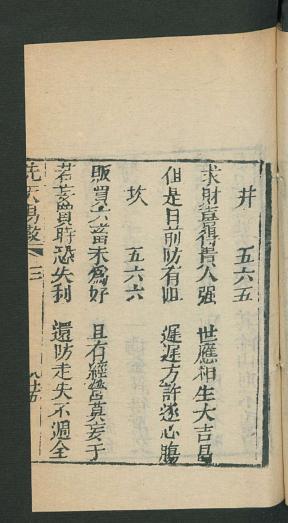 井　五六五
求財喜得貴人強　世應相生大吉昌
但是目前防有　　遲遲方許遂心腸
坎　五六六
販買六畜未為好　且有經營莫妄于
若妄買時恐失利　還防走失不週全
先天易數　三　八十五